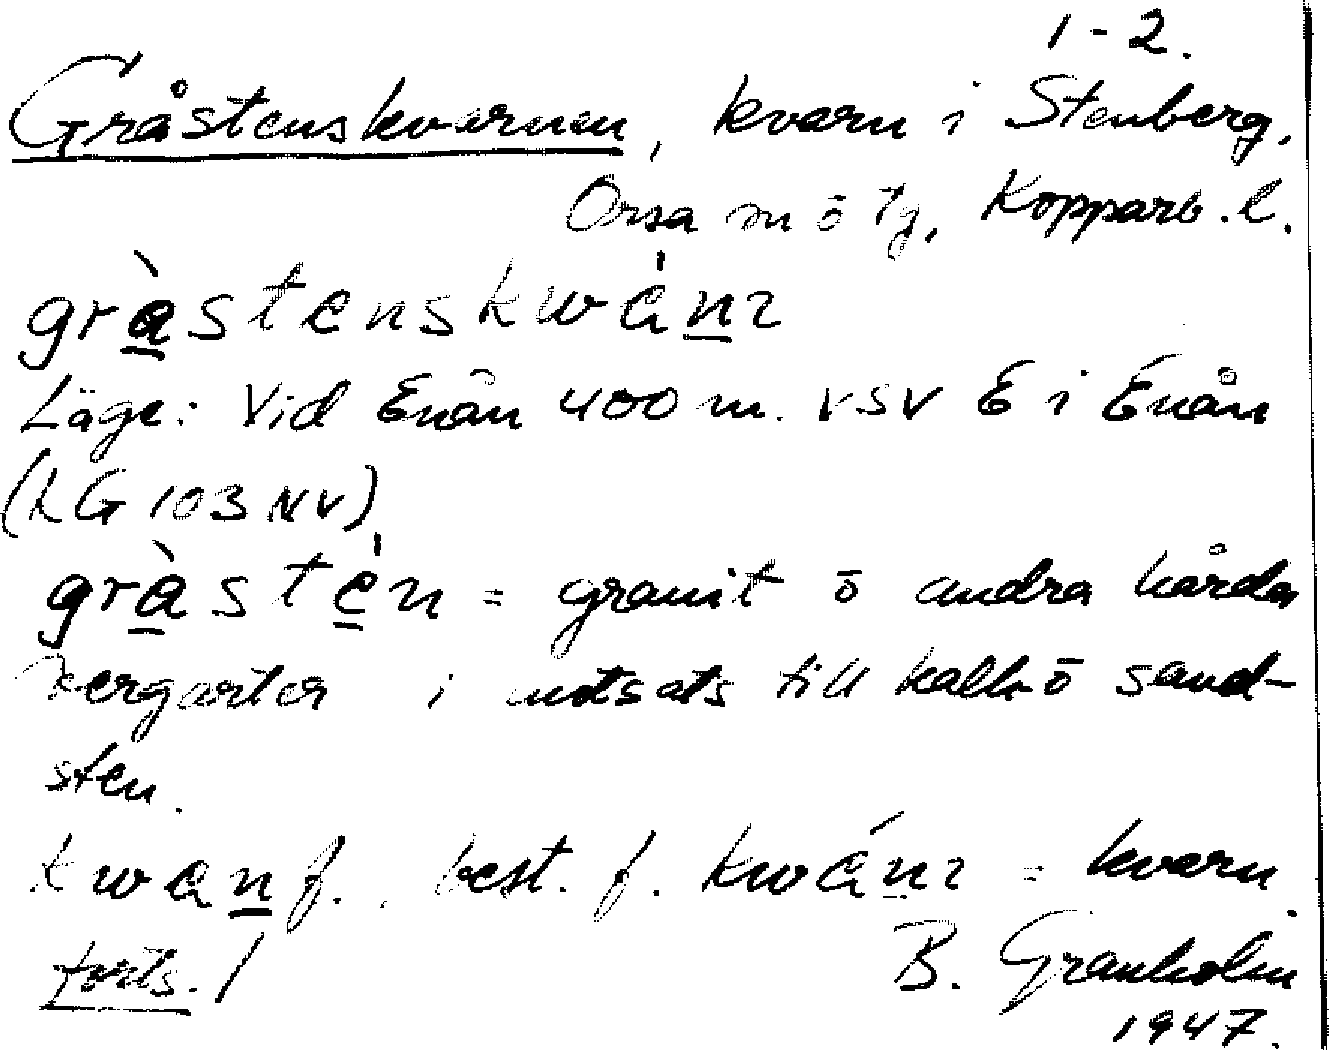 1-2.
Gråstenskvarnen, kvarn i Stenberg,
Orsa m ō tg, Kopparb. l.
gràstenskwánɿ
Läge: Vid Enån 400 m. VSV E i Enån
(KG 103 NV)
gràstèn = granit ō andra hårda
bergarter i motsats till kalk- ō sand-
sten.
kwan f. best. f. kwánɿ = kvarn
forts. /
B. Granholm
1947.